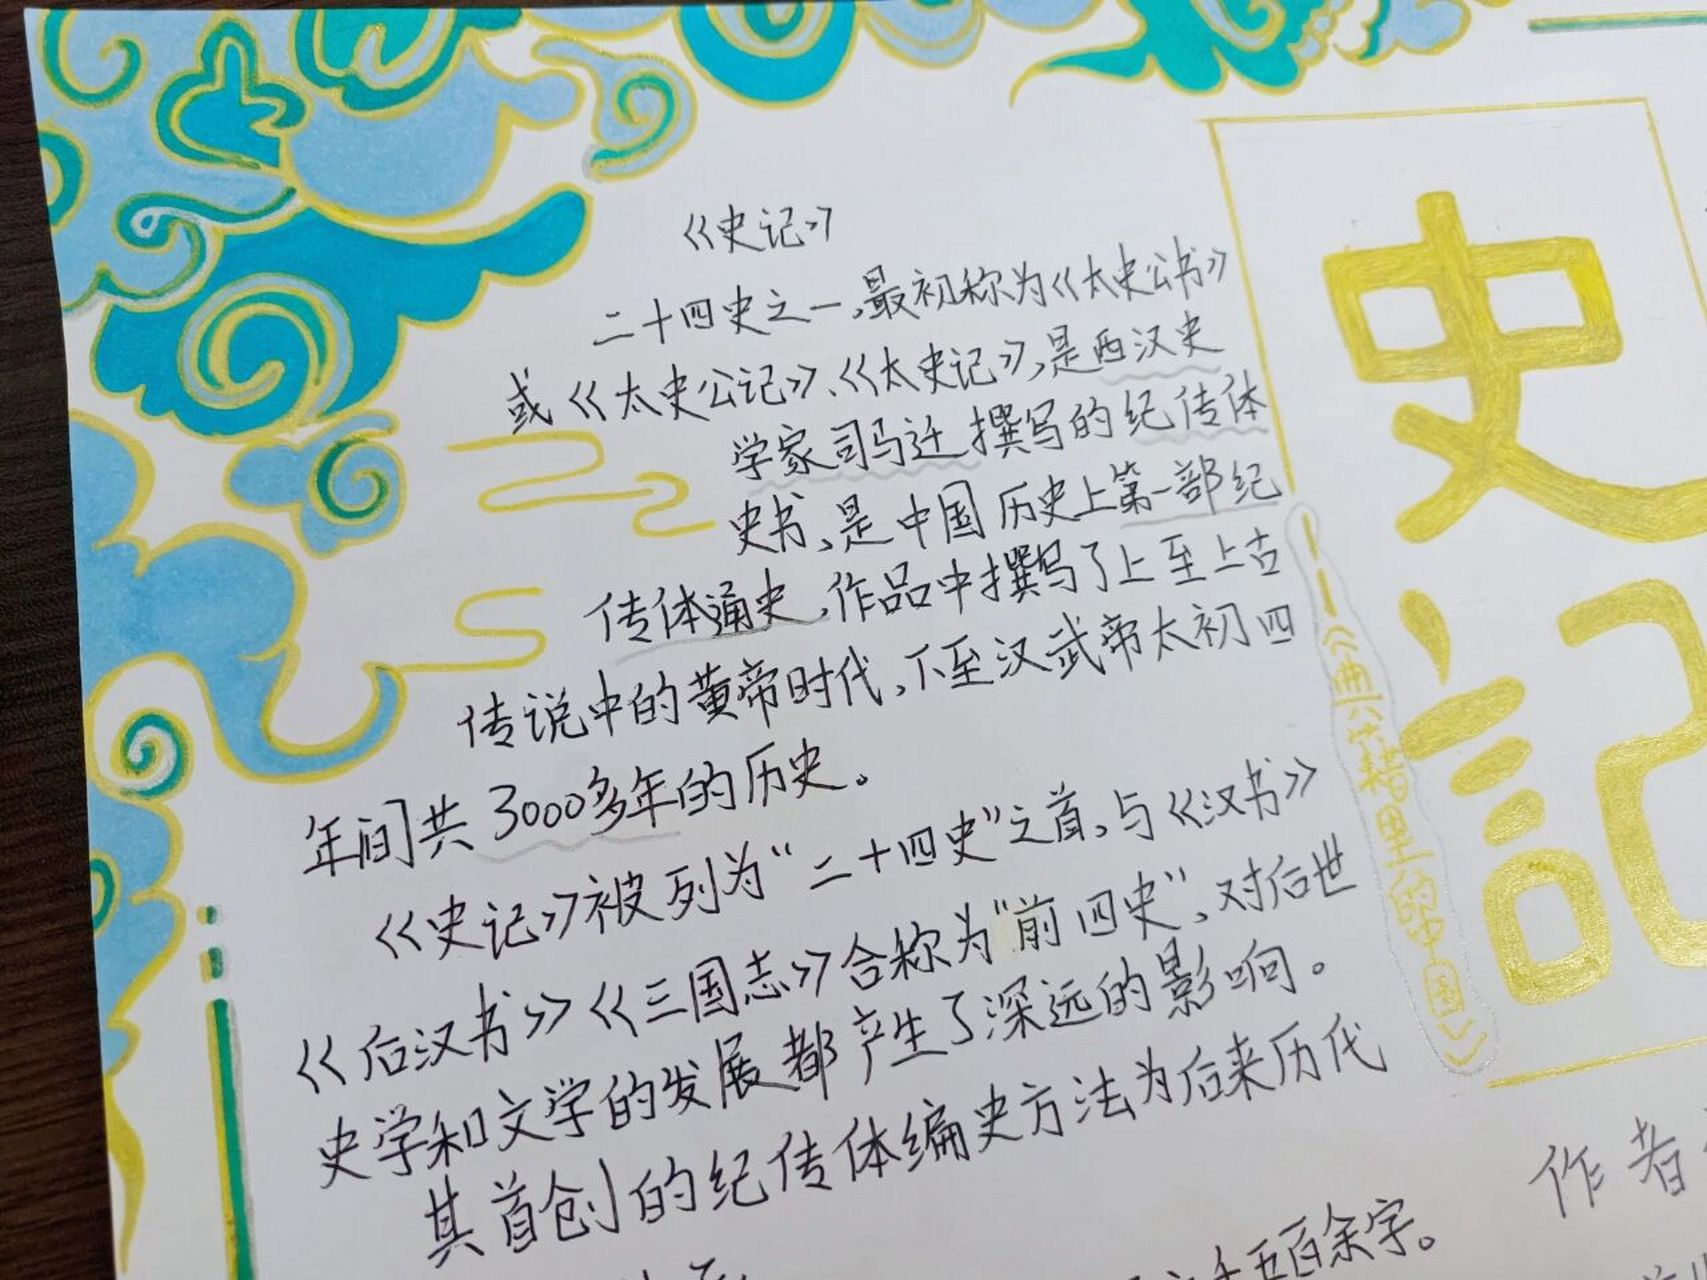 《史记》
二十四史之一,最初称为《太史公书》
或《太史公记》、《太史记》,是西汉史
学家司马迁撰写的纪传体
史书,是中国历史上第一部纪
传体通史,作品中撰写了上至上古
传说中的黄帝时代,下至汉武帝太初四
年间共3000多年的历史。
《史记》被列为“二十四史”之首,与《汉书》
《后汉书》《三国志》合称为“前四史”,对后世
史学和文学的发展都产生了深远的影响。
其首创的纪传体编史方法为后来历代
千五百余字。
史記
——《典籍里的中国》
作者